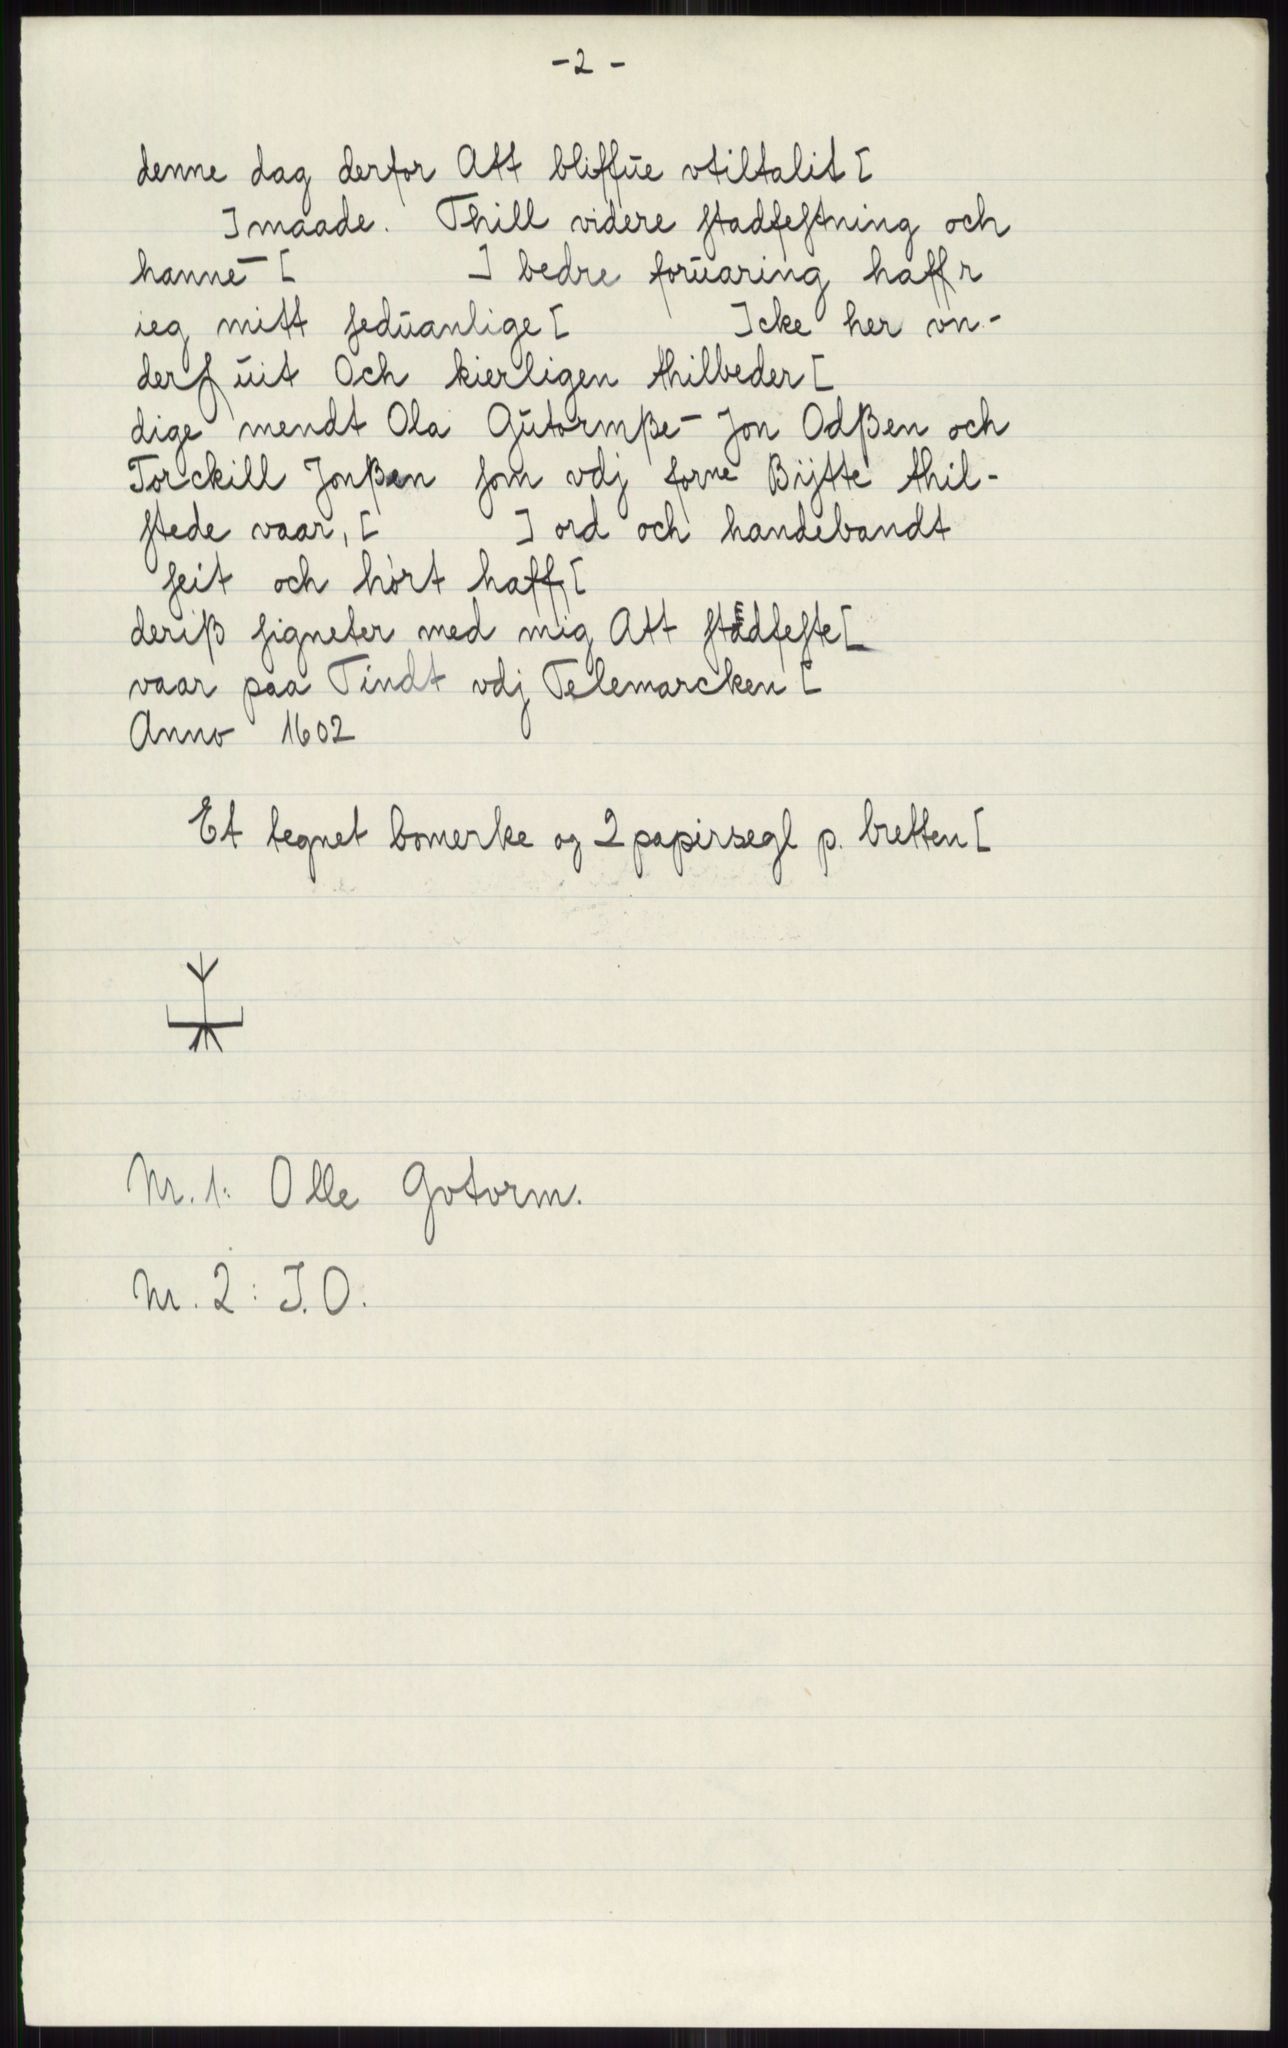 -2-
denne dag derfor Att bliffūe vtiltalit [
] maade. Thill videre ſtadfeſtning och
hanne- [ ] bedre forūaring haffr
ieg mitt ſedūanlige [ ]cke her vn-
derſ ūit Och kierligen thilbeder [
dige mendt Ola Gūtormße- Jon Odßen och
Torckill Jonßen ſom vdj forne Bÿtte thil-
ſtede vaar, [ ] ord och handebandt
ſeit och hört haff [
deriß ſigneter med mig Att ſtadfeſte [
vaar paa Tindt vdj Telemarcken [
Anno 1602
Et tegnet bomerke og 2 papirsegl p. bretten [
Nr. 1: Olle Gotorm.
Nr. 2: J.O.